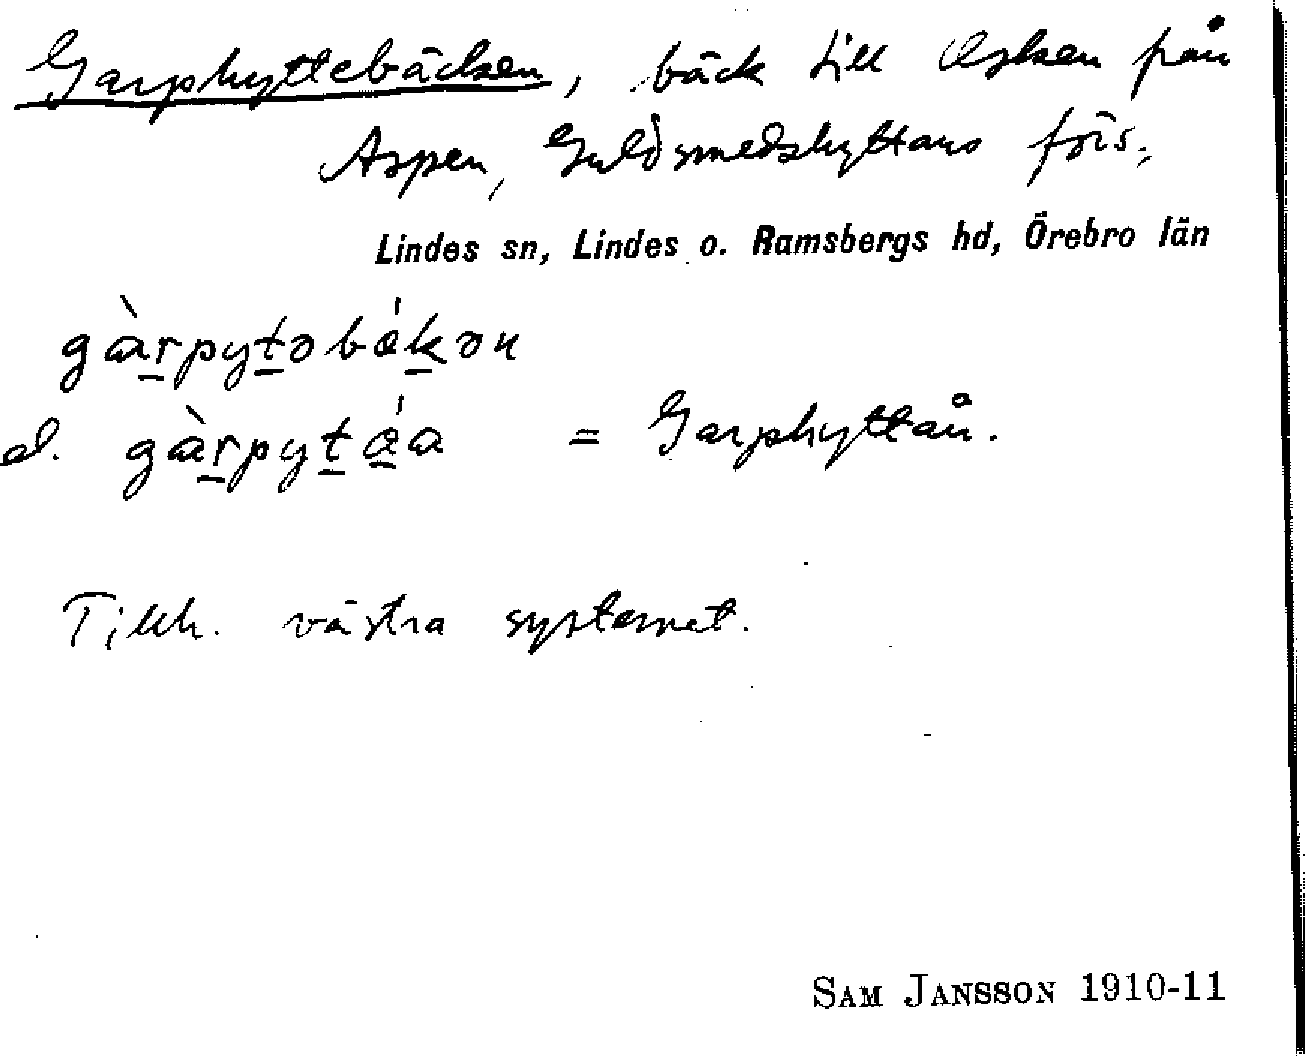 Garphyttebäcken, bäck till Oljken från
Aspen, Guldsmedshyttans förs.,
Lindes sn, Lindes o. Ramsbergs hd, Örebro län
gàrpytəbǽkən
el. gàrpytǽa = Garphyttån.
Tillh. västra systemet.
SAM JANSSON 1910-11